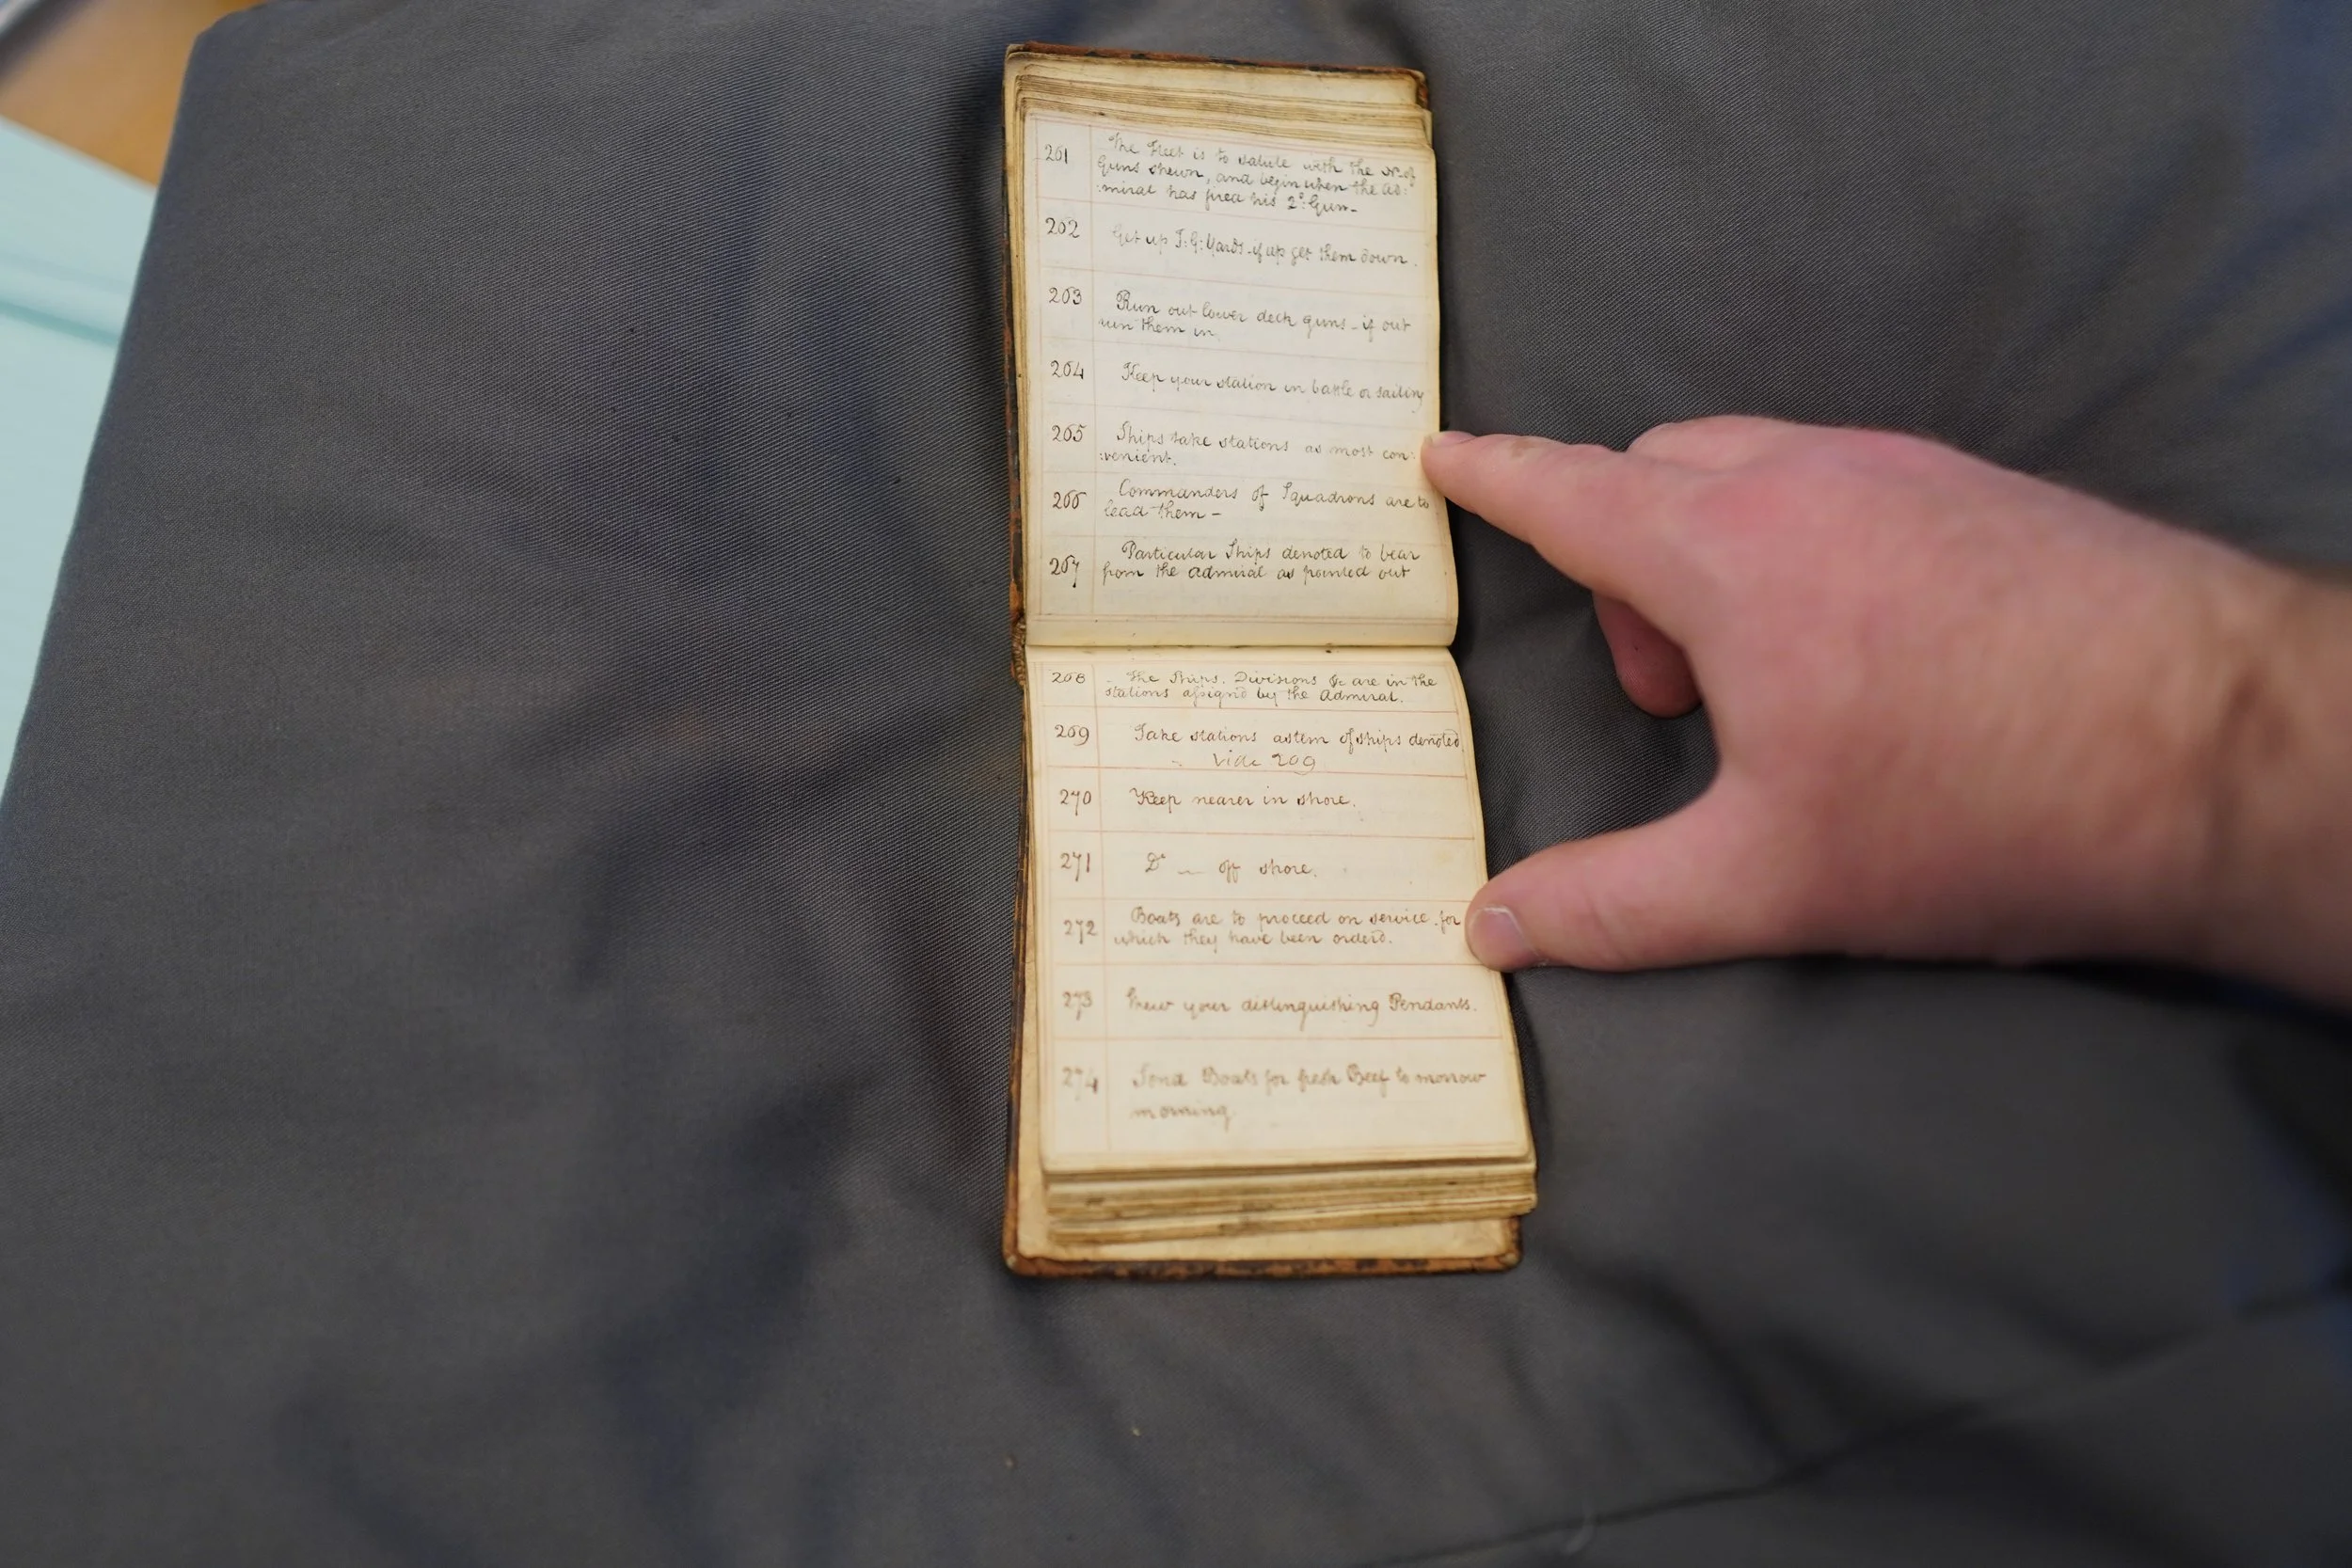 261 The Fleet is to salute with the No. of
Guns shewn, and begin when the Ad:
:miral has fired his 2d: Gun_
262 Get up T:G: Yards - if up get them down.
263 Run out lower deck guns - if out
run them in.
264 Keep your station in battle or sailing
265 Ships take stations as most con:
:venient.
266 Commanders of Squadrons are to
lead them -
267 Particular Ships denoted to bear
from the Admiral as pointed out
268 - The Ships, Divisions &c are in the
stations assign'd by the Admiral.
269 Take stations astern of ships denoted
Vide 209
270 Keep nearer in shore.
271 Do __ off shore.
272 Boats are to proceed on service for
which they have been order'd.
273 Shew your distinguishing Pendants.
274 Send Boats for fresh Beef to morrow
morning.